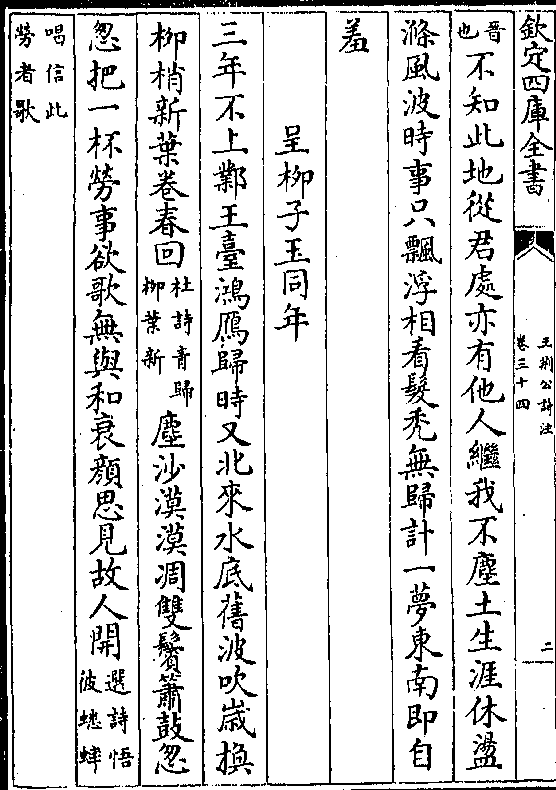 欽定四庫全書
王荆公詩注
卷三十四
二
晋
也
不知此地從君處亦有他人繼我不塵土生涯休盪
滌風波時事只飄浮相看髮秃無歸計一夢東南即自
羞
呈柳子玉同年
三年不上鄴王臺鴻鴈歸時又北來水底舊波吹歲換
柳梢新葉卷春回
杜詩青歸
柳葉新
塵沙漠漠凋雙鬢簫鼓怱
怱把一杯勞事欲歌無與和衰顔思見故人開
選詩悟
彼蟋蟀
唱信此
勞者歌